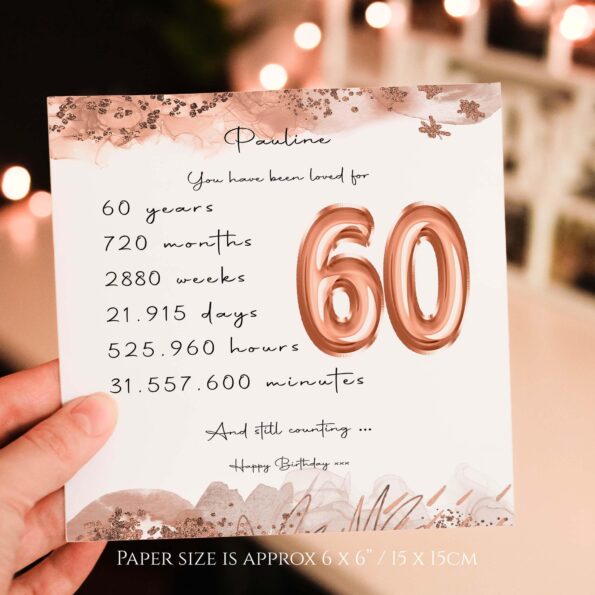 Pauline
You have been loved for
60 years
720 months
2880 weeks
21.915 days
525.960 hours
31.557.600 minutes
60
And still counting ...
Happy Birthday xxx
PAPER SIZE IS APPROX 6 X 6" / 15 X 15CM